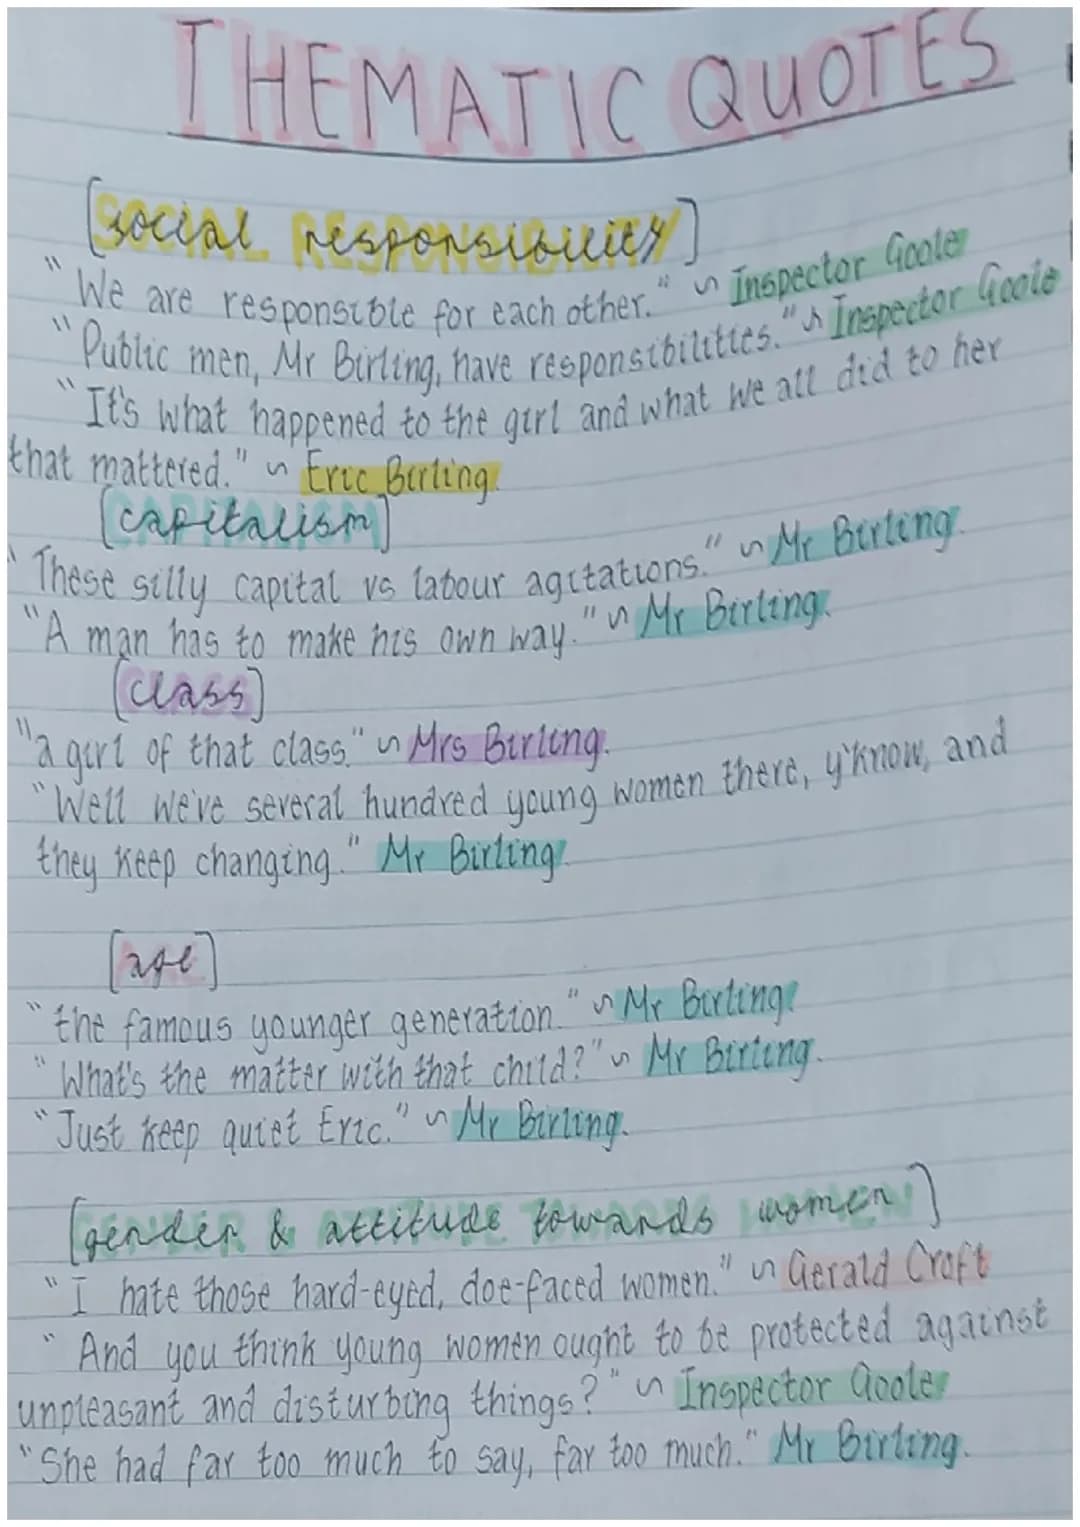 THEMATIC QUOTES
[social responsibility]
"We are responsible for each other." ~ Inspector Goole
"Public men, Mr Birling, have responsibilities." ~ Inspector Goole
"It's what happened to the girl and what we all did to her
that mattered." ~ Eric Birling.
[capitalism]
"These silly capital vs labour agitations." ~ Mr Birling.
"A man has to make his own way." ~ Mr Birling.
[class]
"a girl of that class." ~ Mrs Birling.
"Well we've several hundred young women there, y'know, and
they keep changing." Mr Birling.
[age]
"the famous younger generation." ~ Mr Birling.
"What's the matter with that child?" ~ Mr Birling.
"Just keep quiet Eric." ~ Mr Birling.
[gender & attitude towards women]
"I hate those hard-eyed, doe-faced women." ~ Gerald Croft
"And you think young women ought to be protected against
unpleasant and disturbing things?" ~ Inspector Goole
"She had far too much to say, far too much." Mr Birling.